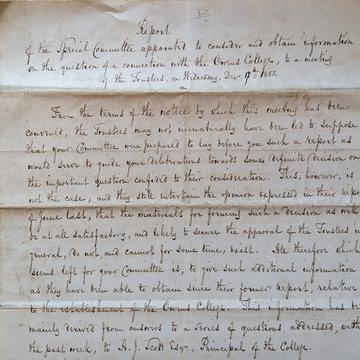 Report
Of the Special Committee appointed to consider and obtain information
on the question of a connection with the Owens College, to a meeting
of the Trustees, on Wednesday, Decr. 9th 1851.
From the terms of the notice by which this meeting has been
convened, the Trustees may not unnaturally have been led to suppose
that your Committee were prepared to lay before you such a report as
would serve to guide your deliberations towards some definite decision on
the important question confided to their consideration. This, however, is
not the case; and they still entertain the opinion expressed in their repo
of June last, that the materials for forming such a decision as wo
be at all satisfactory, and likely to secure the approval of the Trustees i
general, do not and cannot for some time, exist. All therefore which
seems left for your Committee is, to give such additional information
as they have been able to obtain since their former report, relative
to the establishment of the Owens College. This information has be
mainly derived from answers to a series of questions addressed, with
the past week, to A. J. Scott Esqr., Principal of the College.